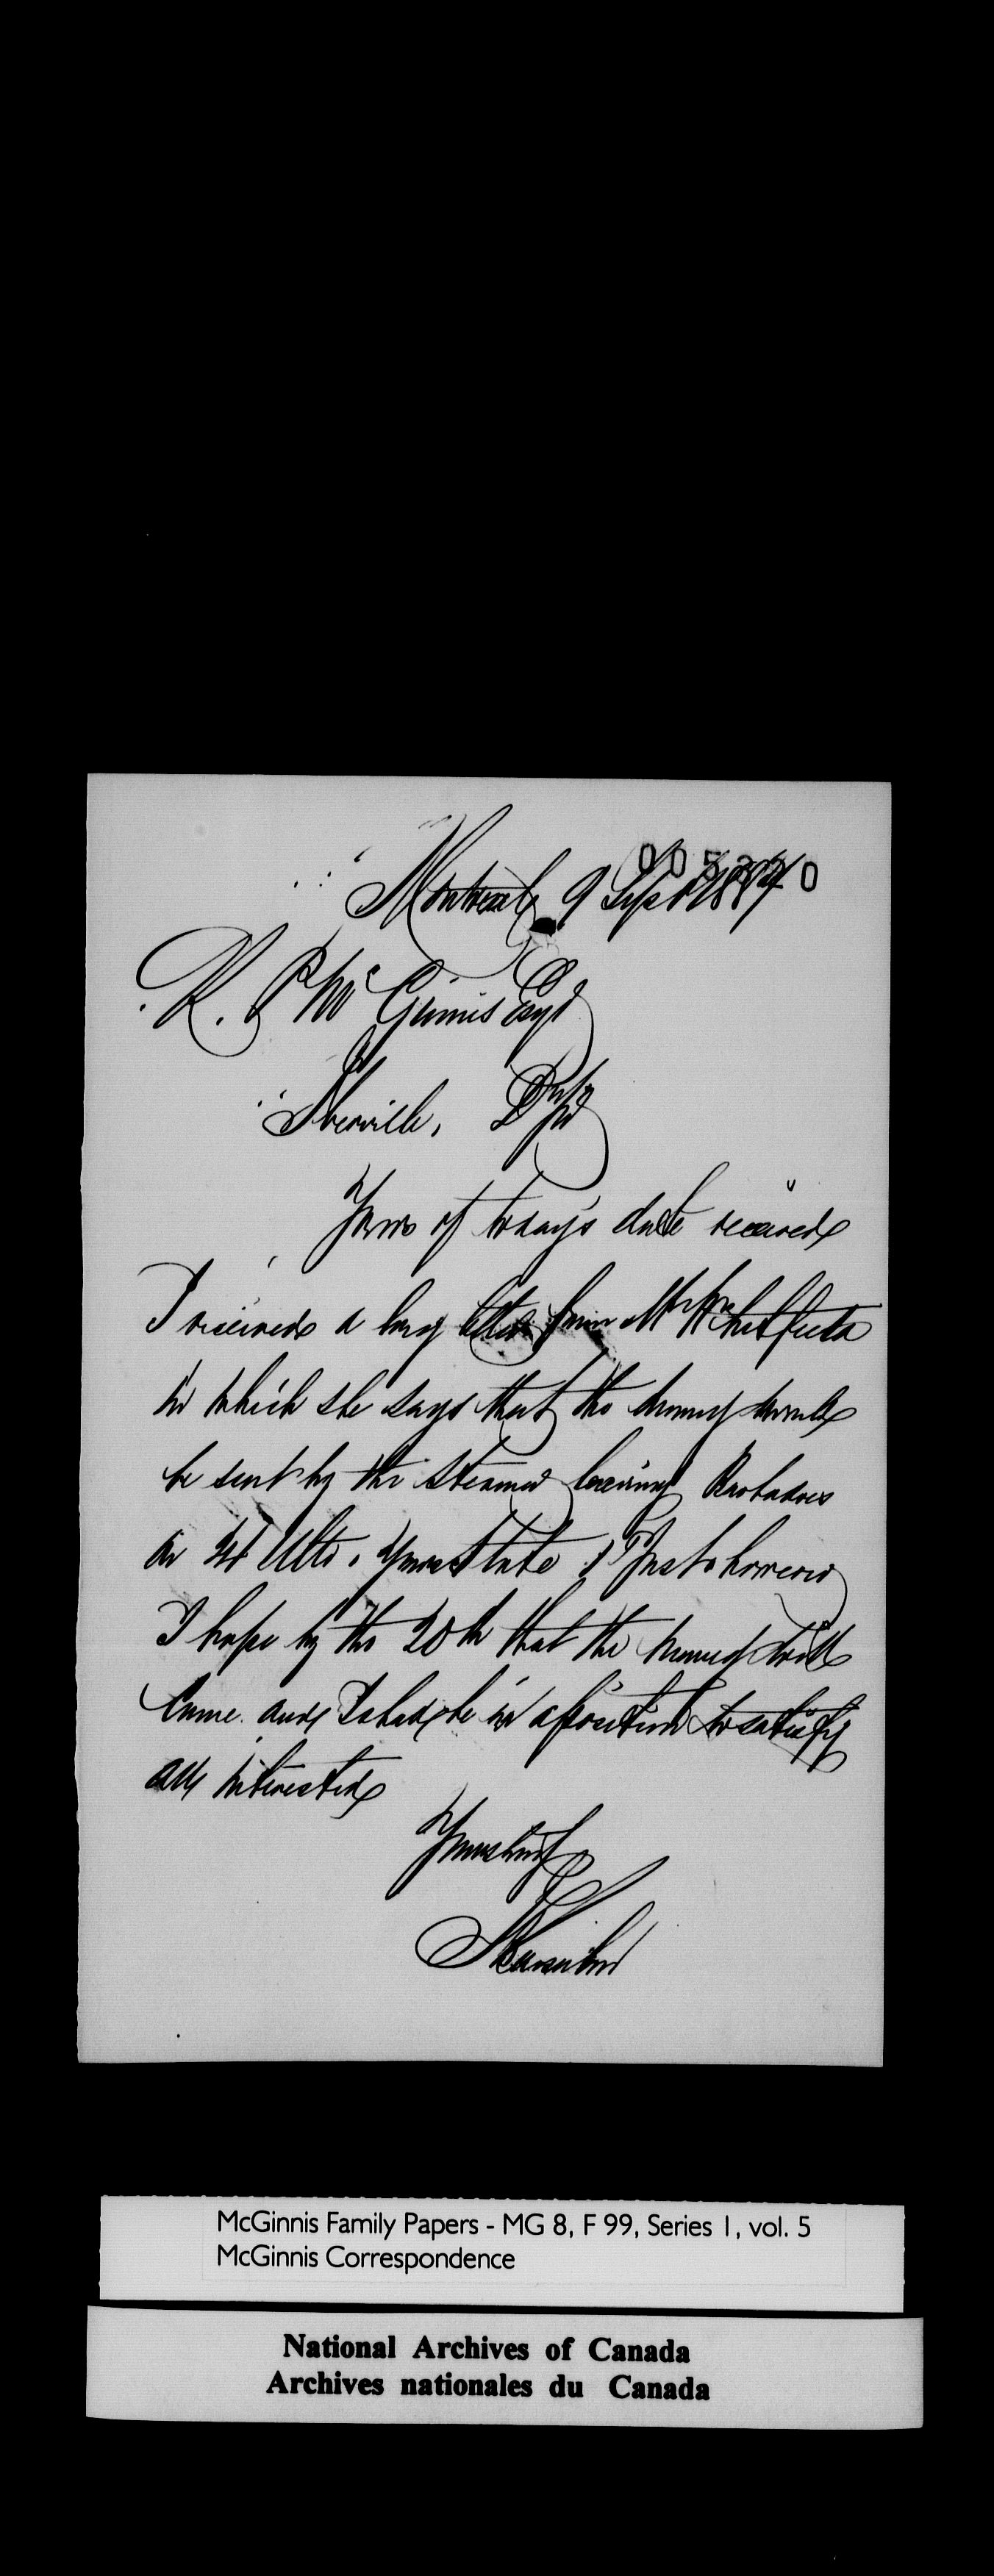 Montreal 9 Sept
005370
R. P. McGinnis Esqr
Iberville, Dr Sir
Yours of today's date received
I received a long letter from
in which she says that the money would
be sent by the Steamer leaving Barbadoes
on Ulto.
I hope by the 20th that the money will
come and I shall be in a position to satisfy
all interested
Yours truly
McGinnis Family Papers - MG 8, F 99, Series 1, vol. 5
McGinnis Correspondence
National Archives of Canada
Archives nationales du Canada